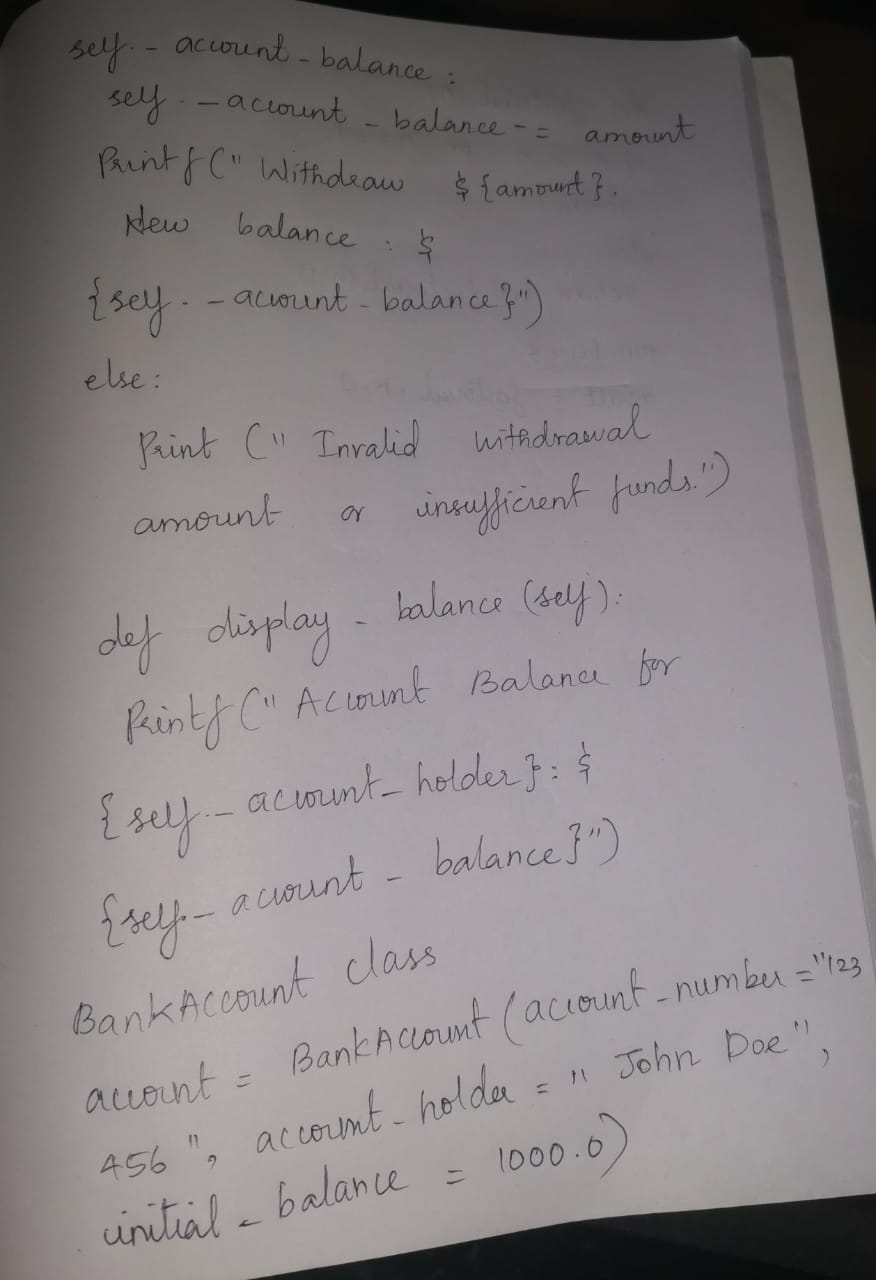 self._account_balance:
self._account_balance -= amount
Printf(" Withdraw ${amount}.
New balance : $
{self._account_balance}")
else:
Print (" Invalid withdrawal
amount or insufficient funds.")
def display_balance (self):
Printf(" Account Balance for
{self._account_holder}: $
{self._account_balance}")
BankAccount class
account = BankAccount (account_number = "123
456 ", account_holder = " John Doe",
initial_balance = 1000.0)